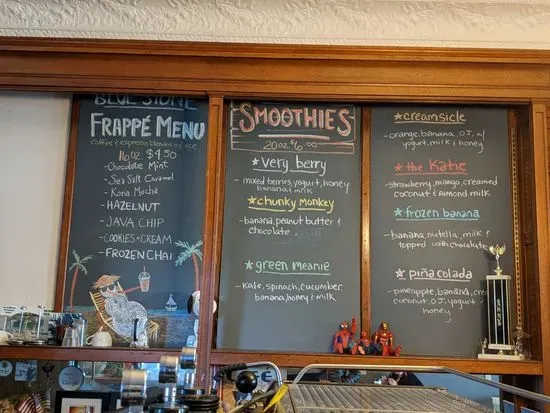 BLUE STONE
FRAPPÉ MENU
coffee & espresso blended w/ ice
16oz. $4.50
- Chocolate Mint
- Sea Salt Caramel
- Kona Mocha
- HAZELNUT
- JAVA CHIP
- COOKIES + CREAM
- FROZEN CHAI
SMOOTHIES
20oz. $6.00
★ very berry
- mixed berries, yogurt, honey
banana, milk
★ chunky monkey
- banana, peanut butter +
chocolate
★ green meanie
- Kale, spinach, cucumber,
banana, honey + milk
★ creamsicle
- orange, banana, O.J. w/
yogurt, milk + honey
★ the Katie
- strawberry, mango, creamed
coconut + Almond milk
★ frozen banana
- banana, nutella, milk +
topped with chocolate
★ piña colada
- pineapple, banana,
coconut, O.J. yogurt +
honey